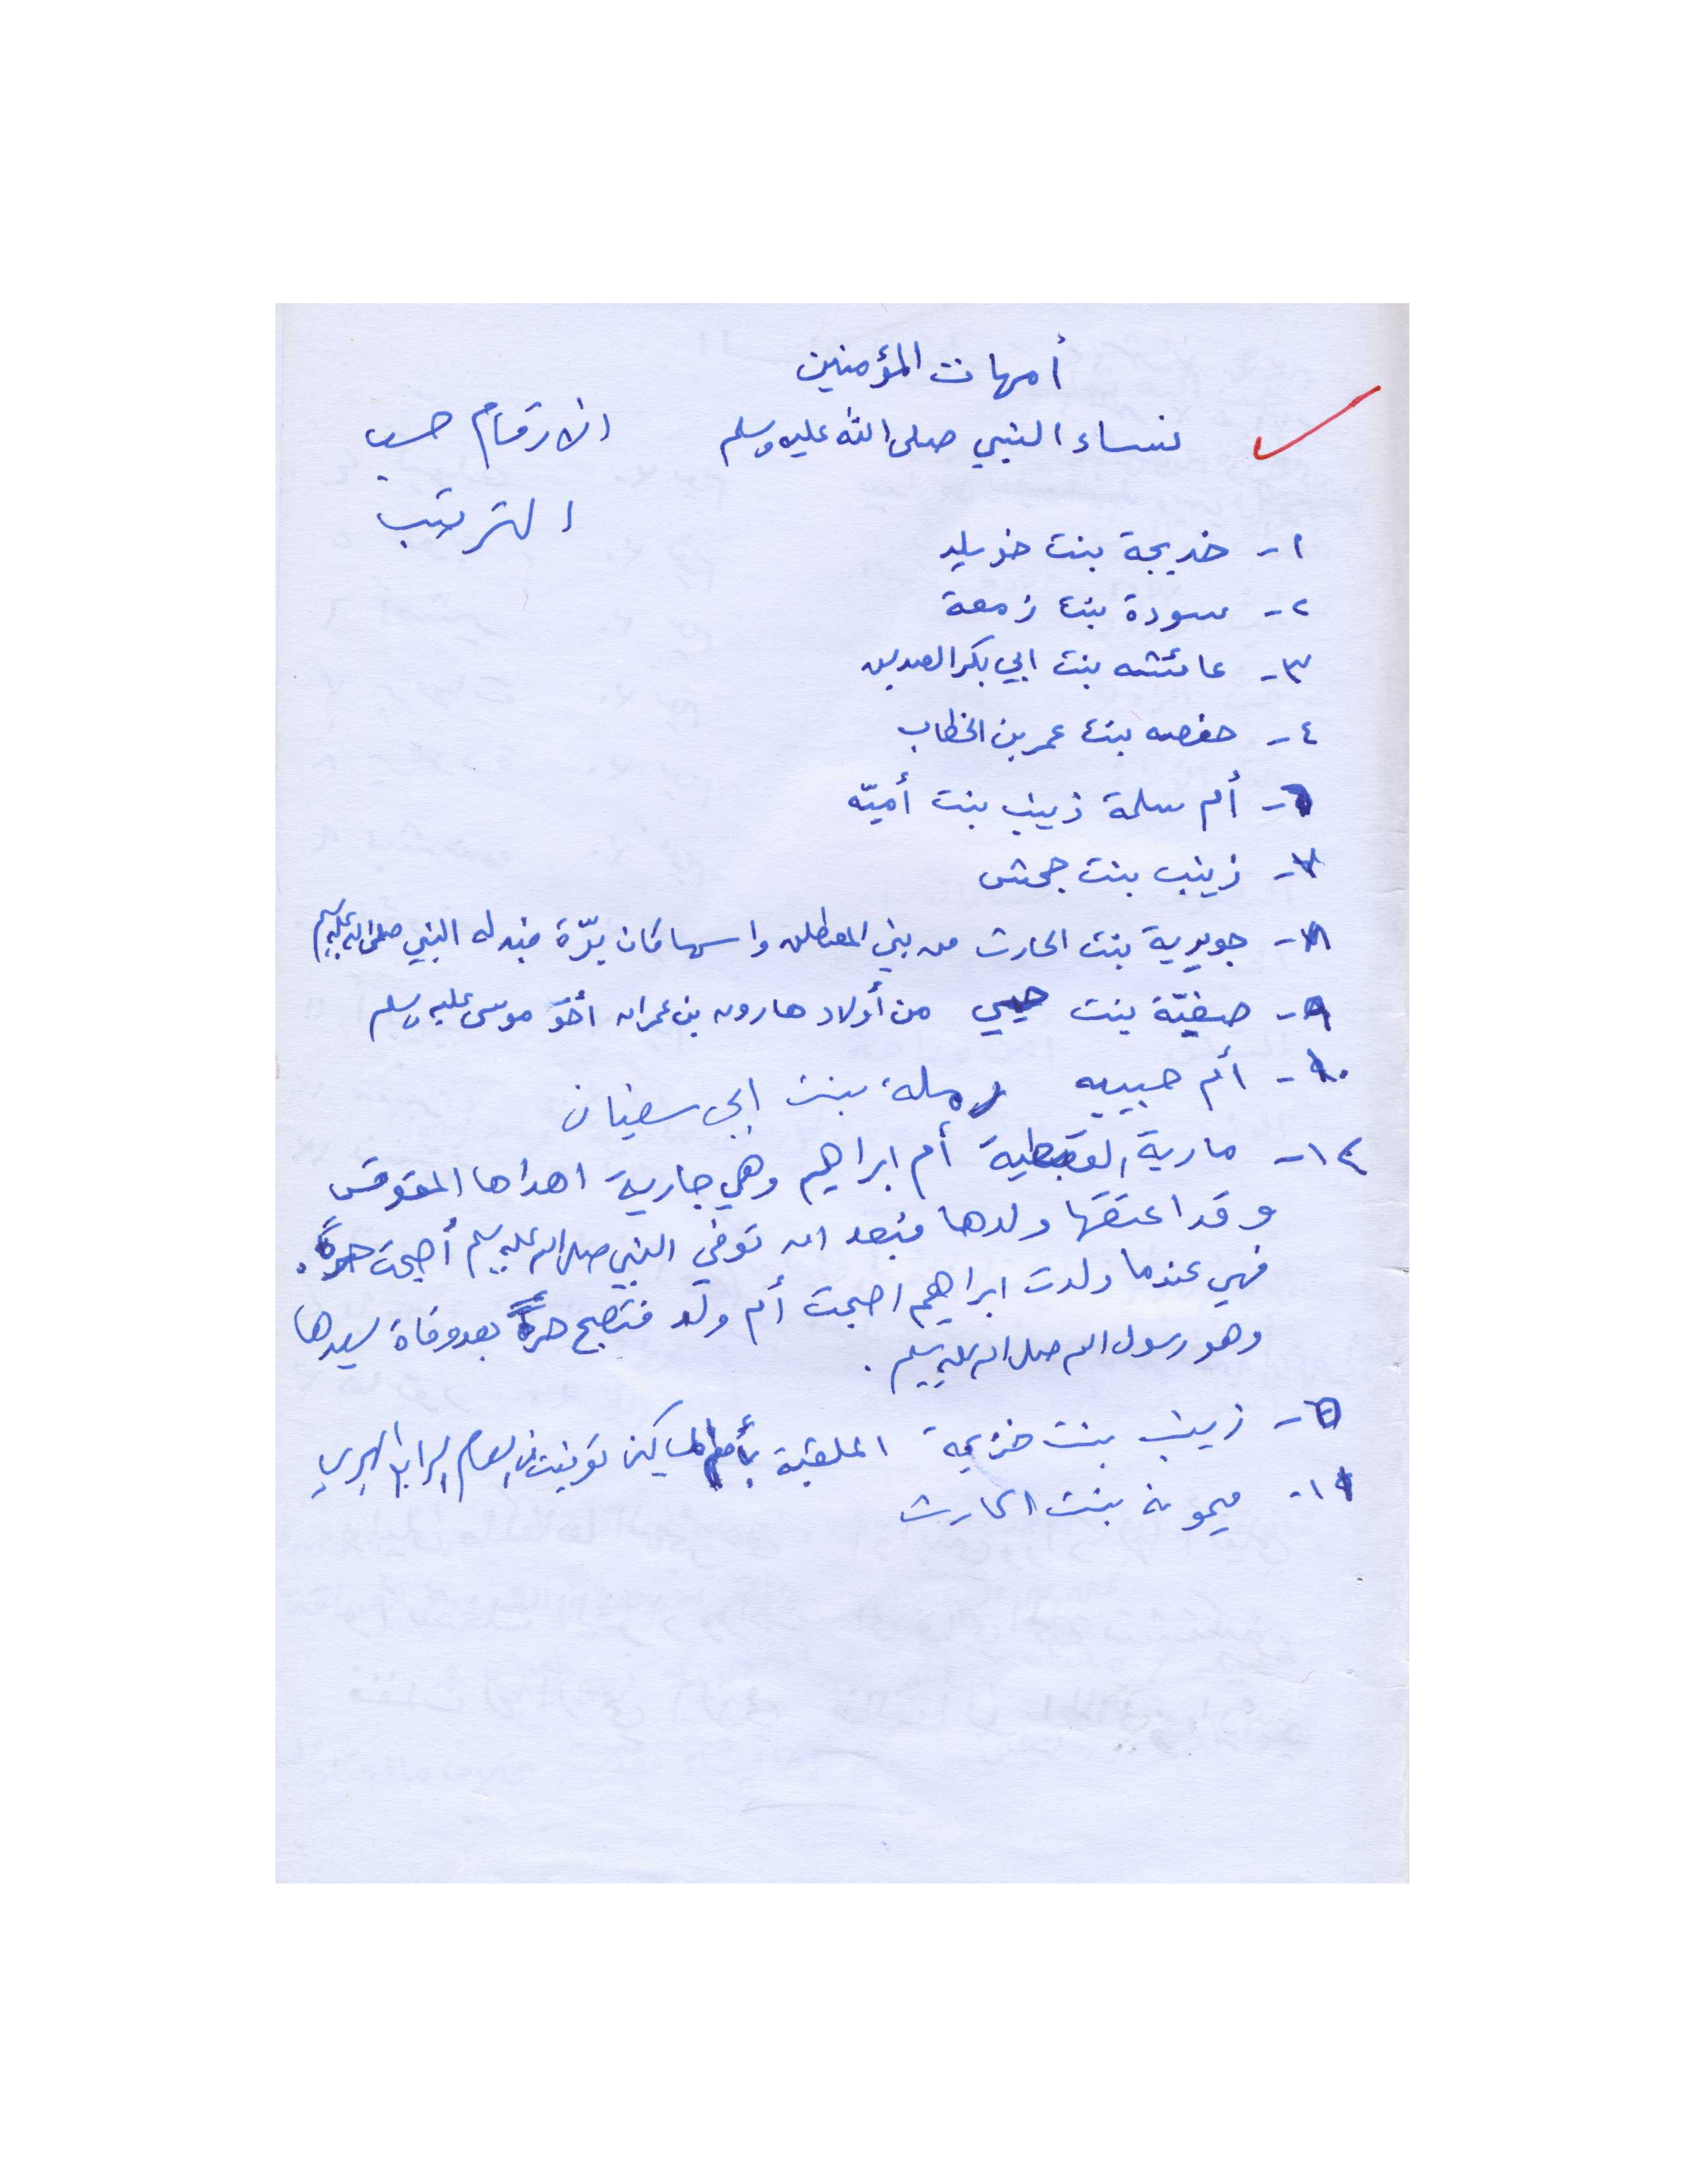 أمهات المؤمنين
نساء النبي صلى الله عليه وسلم
الارقام حسب
الترتيب
١- خديجة بنت خويلد
٢- سودة بنت زمعة
٣- عائشه بنت ابي بكر الصديق
٤- حفصه بنت عمر بن الخطاب
٦- أم سلمة زينب بنت أميّه
٧- زينب بنت جحش
٨- جويرية بنت الحارث من بني المصطلق واسمها كان برّة فبدله النبي صلى الله عليه وسلم
٩- صفيّة بنت حيي من أولاد هارون بن عمران أخو موسى عليه وسلم
١٠- أم حبيبه رملة بنت ابي سفيان
١٢- مارية القبطية أم ابراهيم وهي جارية اهداها المقوقس
وقد اعتقها ولدها فبعد ان توفي النبي صلى الله عليه وسلم أصبحت حرةً.
فهي عندما ولدت ابراهيم اصبحت أم ولد فتصبح حرةً بعد وفاة سيدها
وهو رسول الله صلى الله عليه وسلم.
٥- زينب بنت خزيمة الملقبة بأم المساكين توفيت في العام الرابع الهجري
١١- ميمونة بنت الحارث